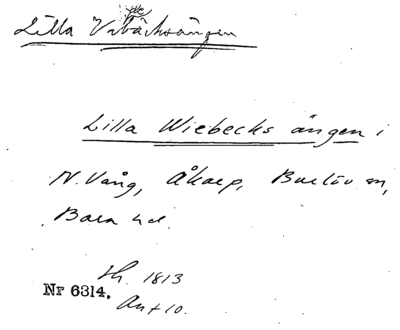 Lilla Vibäcksängen
Lilla Wiebecks ängen i
N. Vång, Åkarp, Burlöv sn,
Bara hd.
Sk. 1813
Nr 6314.
Ant 10.